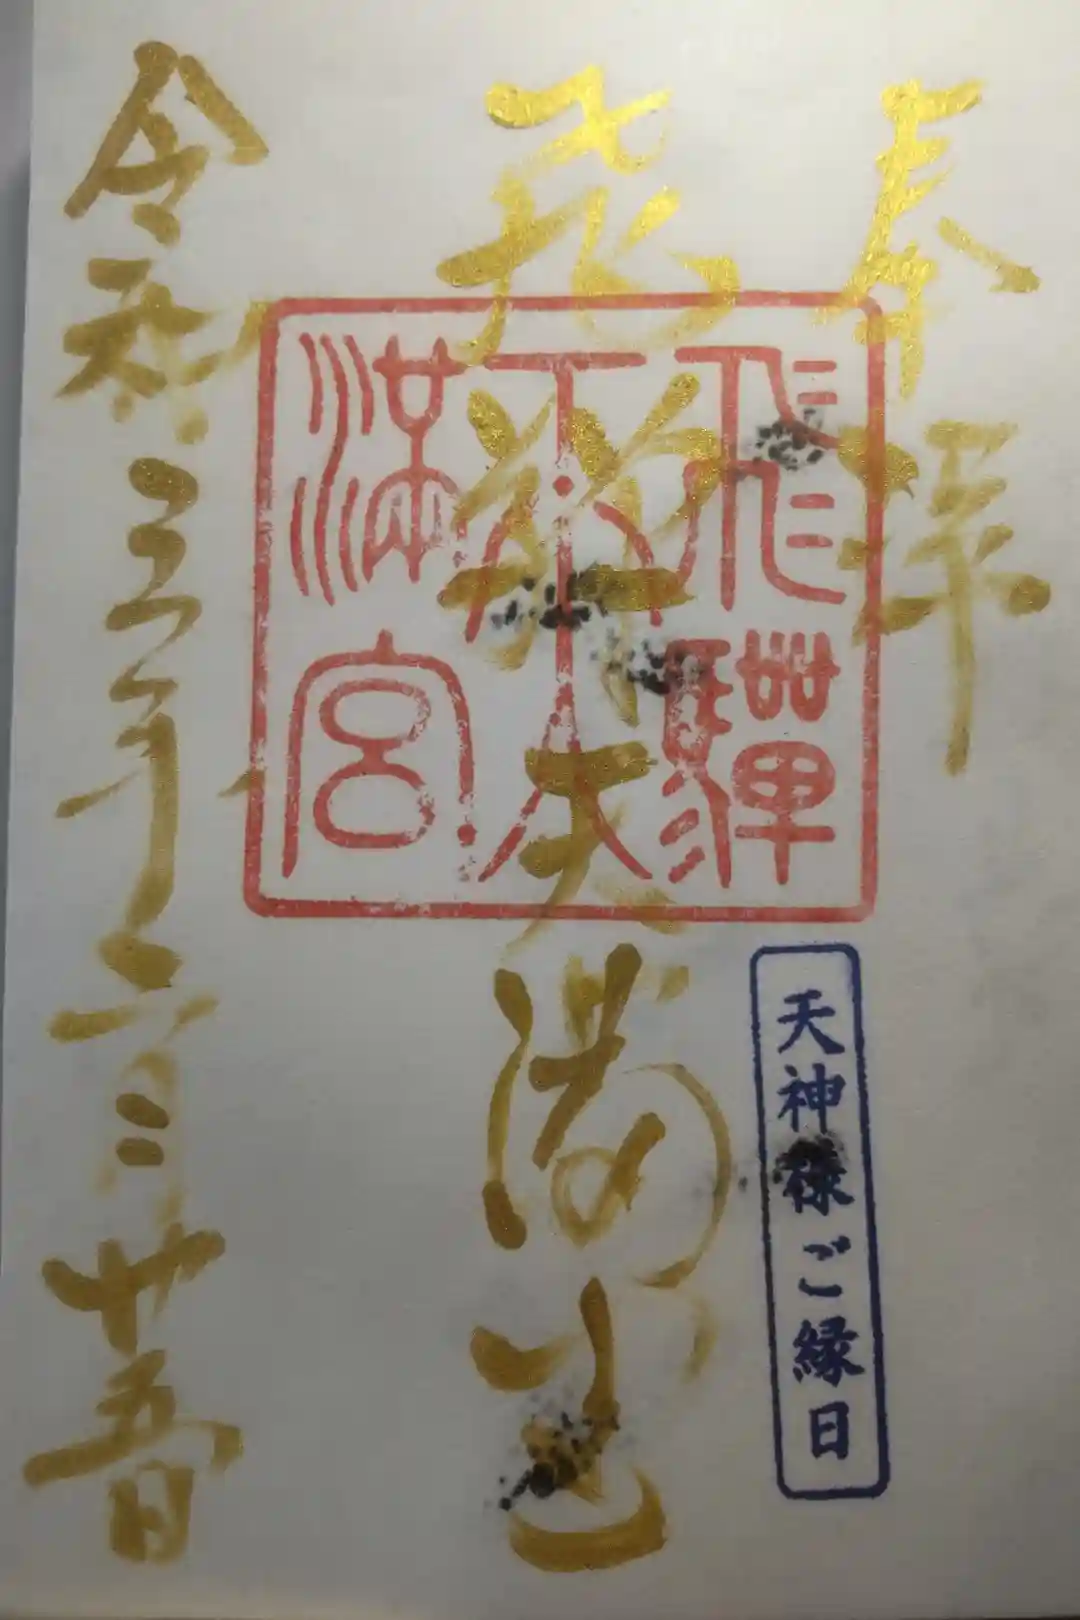 奉拝
飛騨天満宮
飛驒天満宮
天神様ご縁日
令和三年六月廿五日